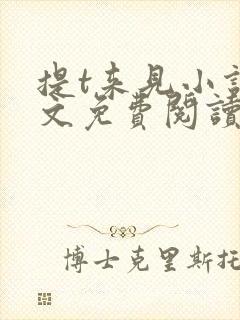 提t来见小説
文免費閱讀
博士克里斯托